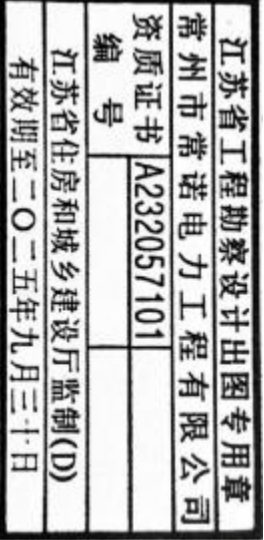 江苏省工程勘察设计出图专用章
常州市常诺电力工程有限公司
资质证书
编号
A232057101
江苏省住房和城乡建设厅监制(D)
有效期至二〇二五年九月三十日